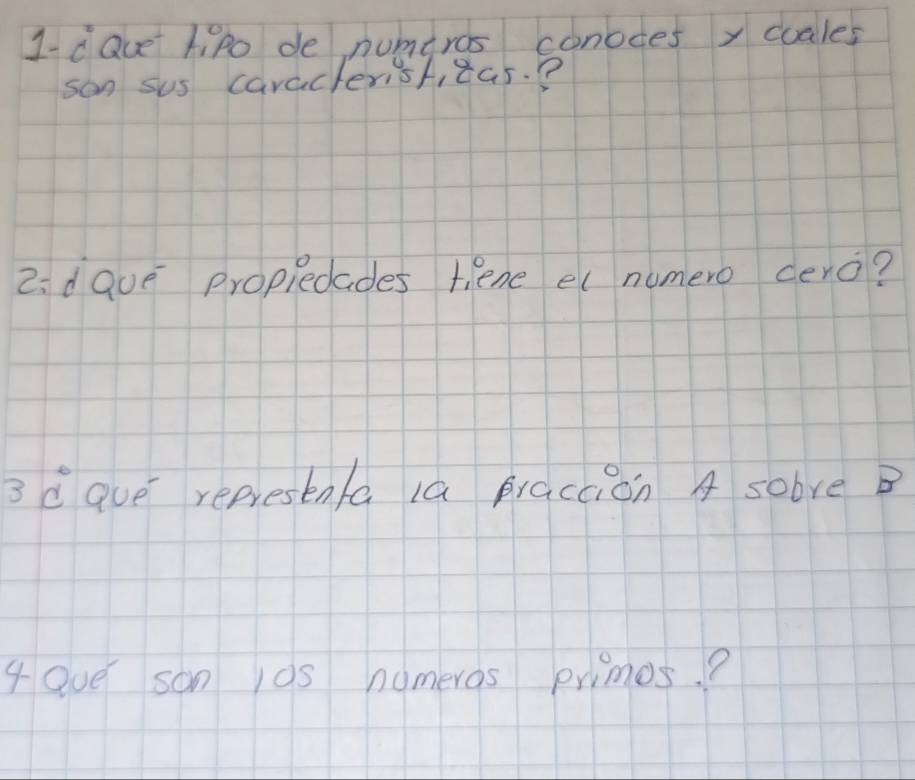 1- ¿Qué tipo de numeros conoces y cuales
son sus caracteristicas.?
2- ¿Qué propiedades tiene el numero cero?
3 ¿Qué representa la fracción A sobre B
4- Qué son los numeros primos.?